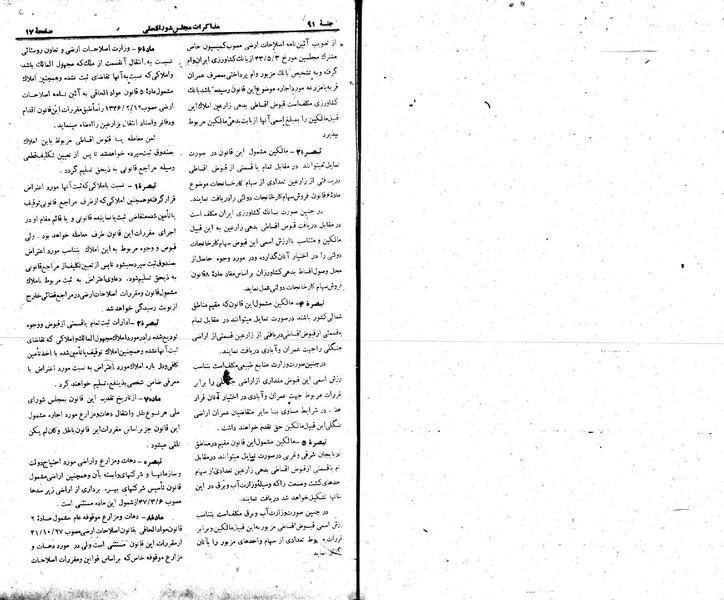 جلسهٔ ۹۱
مذاکرات مجلس شورای ملی
صفحهٔ ۱۷
از تصویب آئین نامه اصلاحات ارضی مصوب کمیسیون خاص
مشترک مجلسین مورخ ۴۳/۵/۳ از بانک کشاورزی ایران وام
گرفته و به تشخیص بانک مزبور وام پرداختی بمصرف عمران
قریه یا مزرعه مورد اجاره موضوع این قانون رسیده باشد بانک
کشاورزی مکلف است قبوض اقساطی بدهی زارعین املاک این
قبیل مالکین را بمبلغ اسمی آنها از بابت بدهی مالکین مربوط
بپذیرد
تبصرهٔ ۳ـ مالکین مشمول این قانون در صورت
تمایل میتوانند در مقابل تمام یا قسمتی از قبوض اقساطی
دریافتی از زارعین تعدادی از سهام کارخانجات موضوع
مادهٔ ۶ قانون فروش سهام کارخانجات دولتی را دریافت نمایند.
در چنین صورت بانک کشاورزی ایران مکلف است
در مقابل دریافت قبوض اقساطی بدهی زارعین به این قبیل
مالکین و متناسب با ارزش اسمی این قبوض سهام کارخانجات
دولتی را در اختیار آنان گذارده و در مورد وجوه حاصل از
محل وصول اقساط بدهی کشاورزان براساس مفاد مادهٔ ۸ قانون
فروش سهام کارخانجات دولتی عمل نماید.
تبصرهٔ ۴ـ مالکین مشمول این قانون که مقیم مناطق
شمالی کشور باشند در صورت تمایل میتوانند در مقابل تمام
یا قسمتی از قبوض اقساطی دریافتی از زارعین قسمتی از اراضی
جنگلی را جهت عمران و آبادی دریافت نمایند.
در چنین صورت وزارت منابع طبیعی مکلف است متناسب
ارزش اسمی این قبوض مقداری از اراضی جنگلی را برابر
مقررات مربوط جهت عمران و آبادی در اختیار آنان قرار
دهد. در شرایط مساوی با سایر متقاضیان عمران اراضی
جنگلی این قبیل مالکین حق تقدم خواهند داشت.
تبصرهٔ ۵ـ مالکین مشمول این قانون مقیم در مناطق
آذربایجان شرقی و غربی در صورت تمایل میتوانند در مقابل
تمام یا قسمتی از قبوض اقساطی بدهی زارعین تعدادی از سهام
واحدهای کشت و صنعت را که وسیلهٔ وزارت آب و برق در این
استانها تشکیل خواهد شد دریافت نمایند.
در چنین صورت وزارت آب و برق مکلف است متناسب
ارزش اسمی قبوض اقساطی مزبور به این قبیل مالکین و برابر
مقررات مربوط تعدادی از سهام واحدهای مزبور را بآنان
نماید
مادهٔ ۶ـ وزارت اصلاحات ارضی و تعاون روستائی
نسبت به انتقال آنقسمت از ملک که مجهول المالک باشد
و املاکی که نسبت به آنها تقاضای ثبت نشده و همچنین املاک
مشمول مادهٔ ۵ قانون مواد الحاقی به آئین نامه اصلاحات
ارضی مصوب ۱۳۴۶/۲/۱۲ رأساً طبق مقررات این قانون اقدام
و دفاتر و اسناد انتقال بزارعین را امضاء مینماید.
ثمن معامله یا قبوض اقساطی مربوط باین املاک
صندوق ثبت سپرده خواهد شد تا پس از تعیین تکلیف قطعی
وسیله مراجع قانونی به ذیحق تسلیم گردد.
تبصرهٔ ۱ـ نسبت باملاکی که ثبت آنها مورد اعتراض
قرار گرفته و همچنین املاکی که از طرف مراجع قانونی توقیف
یا تأمین شده متقاضی ثبت یا نماینده قانونی و یا قائم مقام او در
اجرای مقررات این قانون طرف معامله خواهد بود. ولی
قبوض و وجوه مربوط به این املاک بتناسب مورد اعتراض
صندوق ثبت سپرده میشود تا پس از تعیین تکلیف از مراجع قانونی
به ذیحق تسلیم شود. دعاوی اعتراض به ثبت مربوط باملاک
مشمول قانون و مقررات اصلاحات ارضی در مراجع قضائی خارج
از نوبت رسیدگی خواهد شد.
تبصرهٔ ۲ـ ادارات ثبت تمام یا قسمتی از قبوض و وجوه
تودیع شده را در مورد املاک مجهول المالک و املاکی که تقاضای
ثبت آنها نشده و همچنین املاک توقیف یا تأمین شده با اخذ تأمین
کافی و در باره املاک مورد اعتراض به نسبت مورد اعتراض با
معرفی ضامن شخصی بذینفع، تسلیم خواهند کرد.
مادهٔ ۷ـ از تاریخ تقدیم این قانون بمجلس شورای
ملی هر نوع نقل و انتقال دهات و مزارع مورد اجاره مشمول
این قانون جز براساس مقررات این قانون باطل و کان لم یکن
تلقی میشود.
تبصره ـ دهات و مزارع و اراضی مورد احتیاج دولت
و سازمانها و شرکتهای وابسته بآن و همچنین اراضی مشمول
قانون تأسیس شرکتهای بهره برداری از اراضی زیر سدها
مصوب ۴۷/۳/۶ از شمول این ماده مستثنی است.
مادهٔ ۸ـ دهات و مزارع موقوفه عام مشمول مادهٔ ۲
قانون مواد الحاقی بقانون اصلاحات ارضی مصوب ۴۱/۱۰/۲۷
از مقررات این قانون مستثنی است ولی در مورد دهات و
مزارع موقوفه خاص که براساس قوانین و مقررات اصلاحات